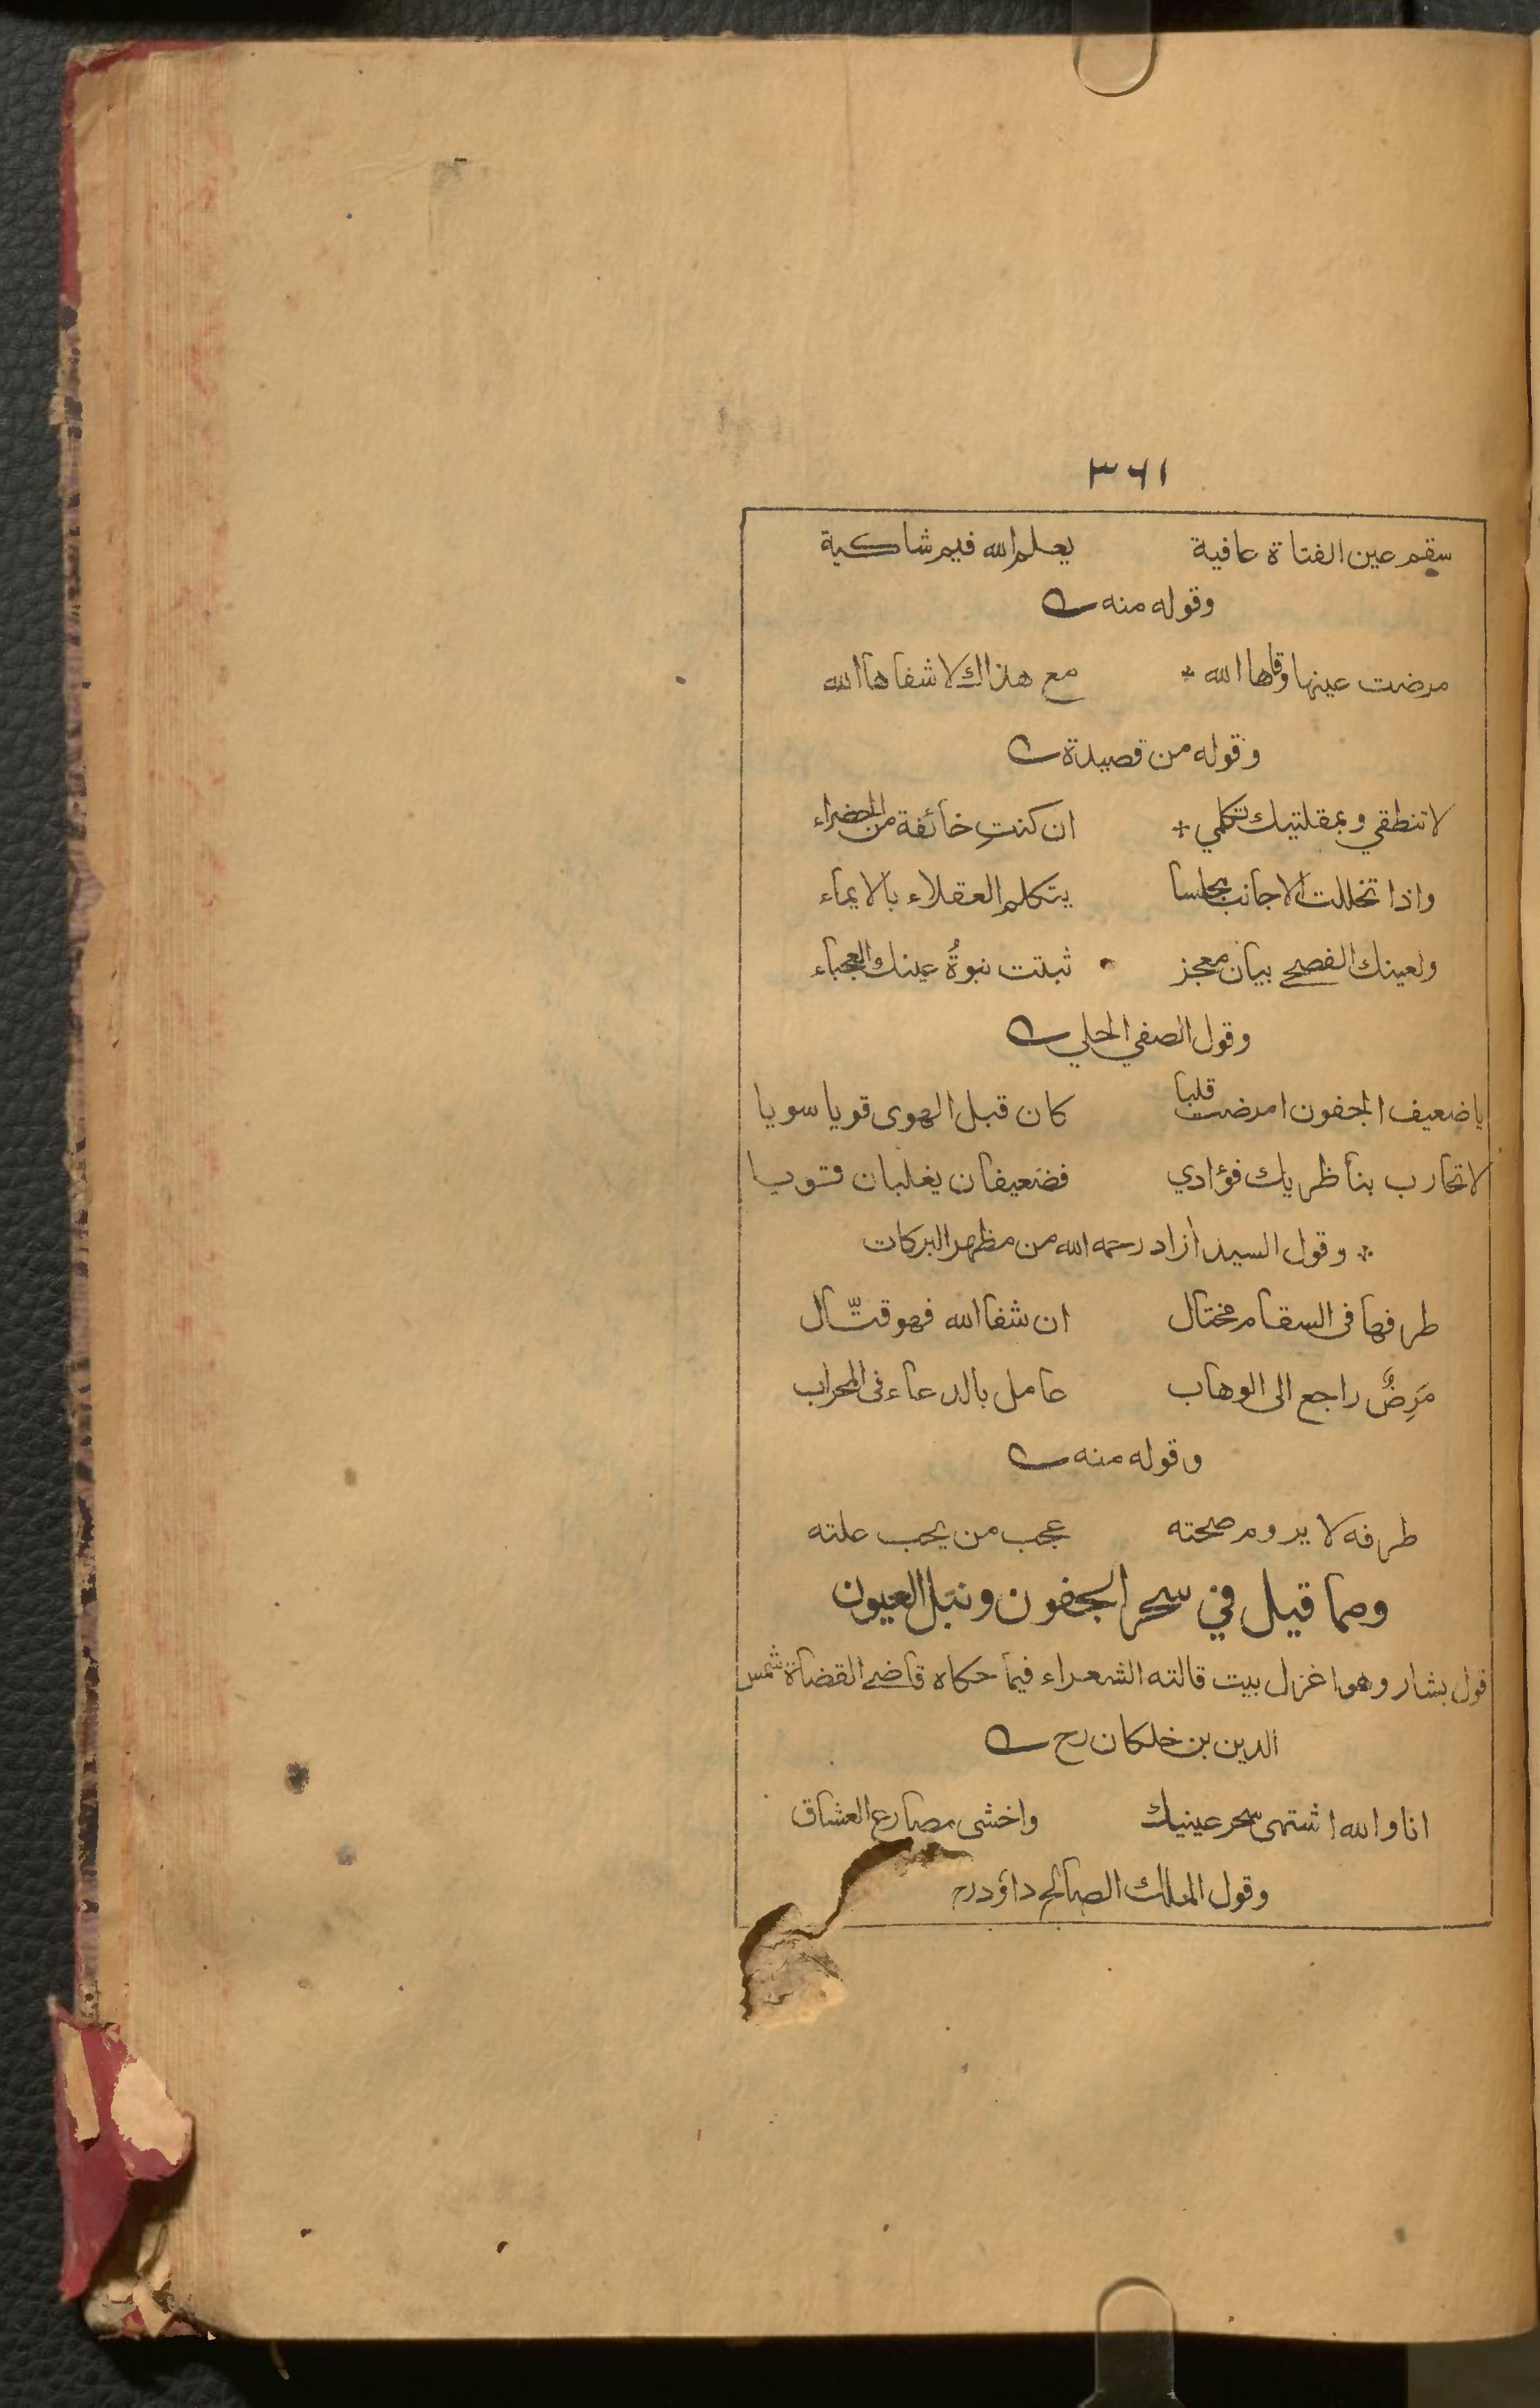 ٣٦١
سقم عين الفتاة عافية يعلم الله فيم شاكية
وقوله منه
مرضت عينها وقاها الله * مع هذاك لا شفاها الله
وقوله من قصيدة
لا تنطقي وبمقلتيك تكلمي * ان كنتِ خائفة من الحضراء
واذا تخللت الاجانب مجلسا يتكلم العقلاء بالايماء
ولعينك الفصحى بيان معجز ثبتت نبوةُ عينك العجباء
وقول الصفي الحلي
يا ضعيف الجفون امرضت قلبا كان قبل الهوى قويا سويا
لا تحارب بناظريك فؤادي فضعيفان يغلبان قويا
* وقول السيد آزاد رحمه الله من مظهر البركات
طرفها في السقام مختال ان شفا الله فهو قتّال
مَرِضٌ راجع الى الوهاب عامل بالدعاء فى المحراب
وقوله منه
طرفه لا يدوم صحته عجب من يحب علته
ومما قيل في سحر الجفون ونبل العيون
قول بشار وهو اغزل بيت قالته الشعراء فيما حكاه قاضي القضاة شمس
الدين بن خلكان رح
انا والله اشتهى سحر عينيك واخشى مصارع العشاق
وقول الملك الصالح داؤد رح